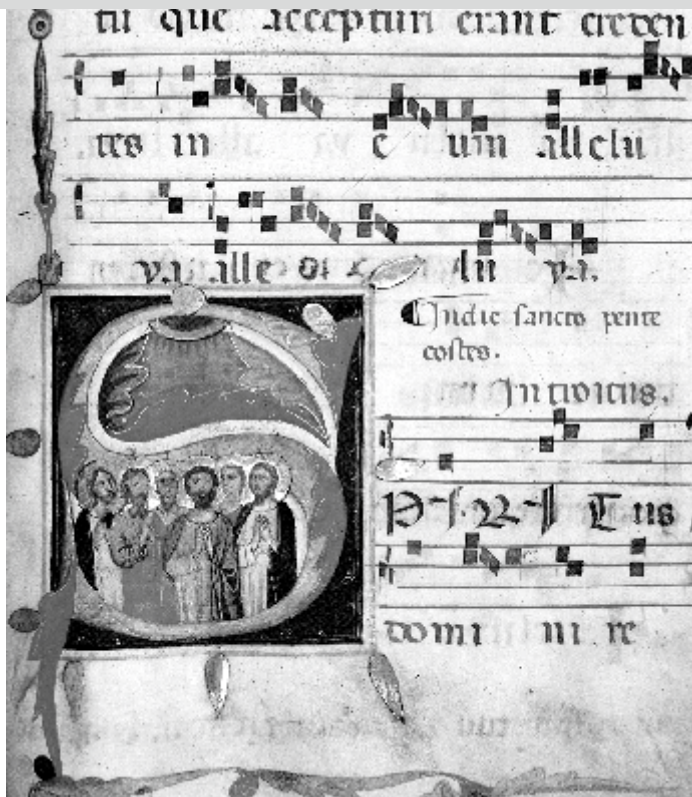 tū que accepturi erant creden
tes in e um allelu
ya. alle lu ya.
In die sancto pente
costes.
Introitus.
SPIRI Tus
domi ni re